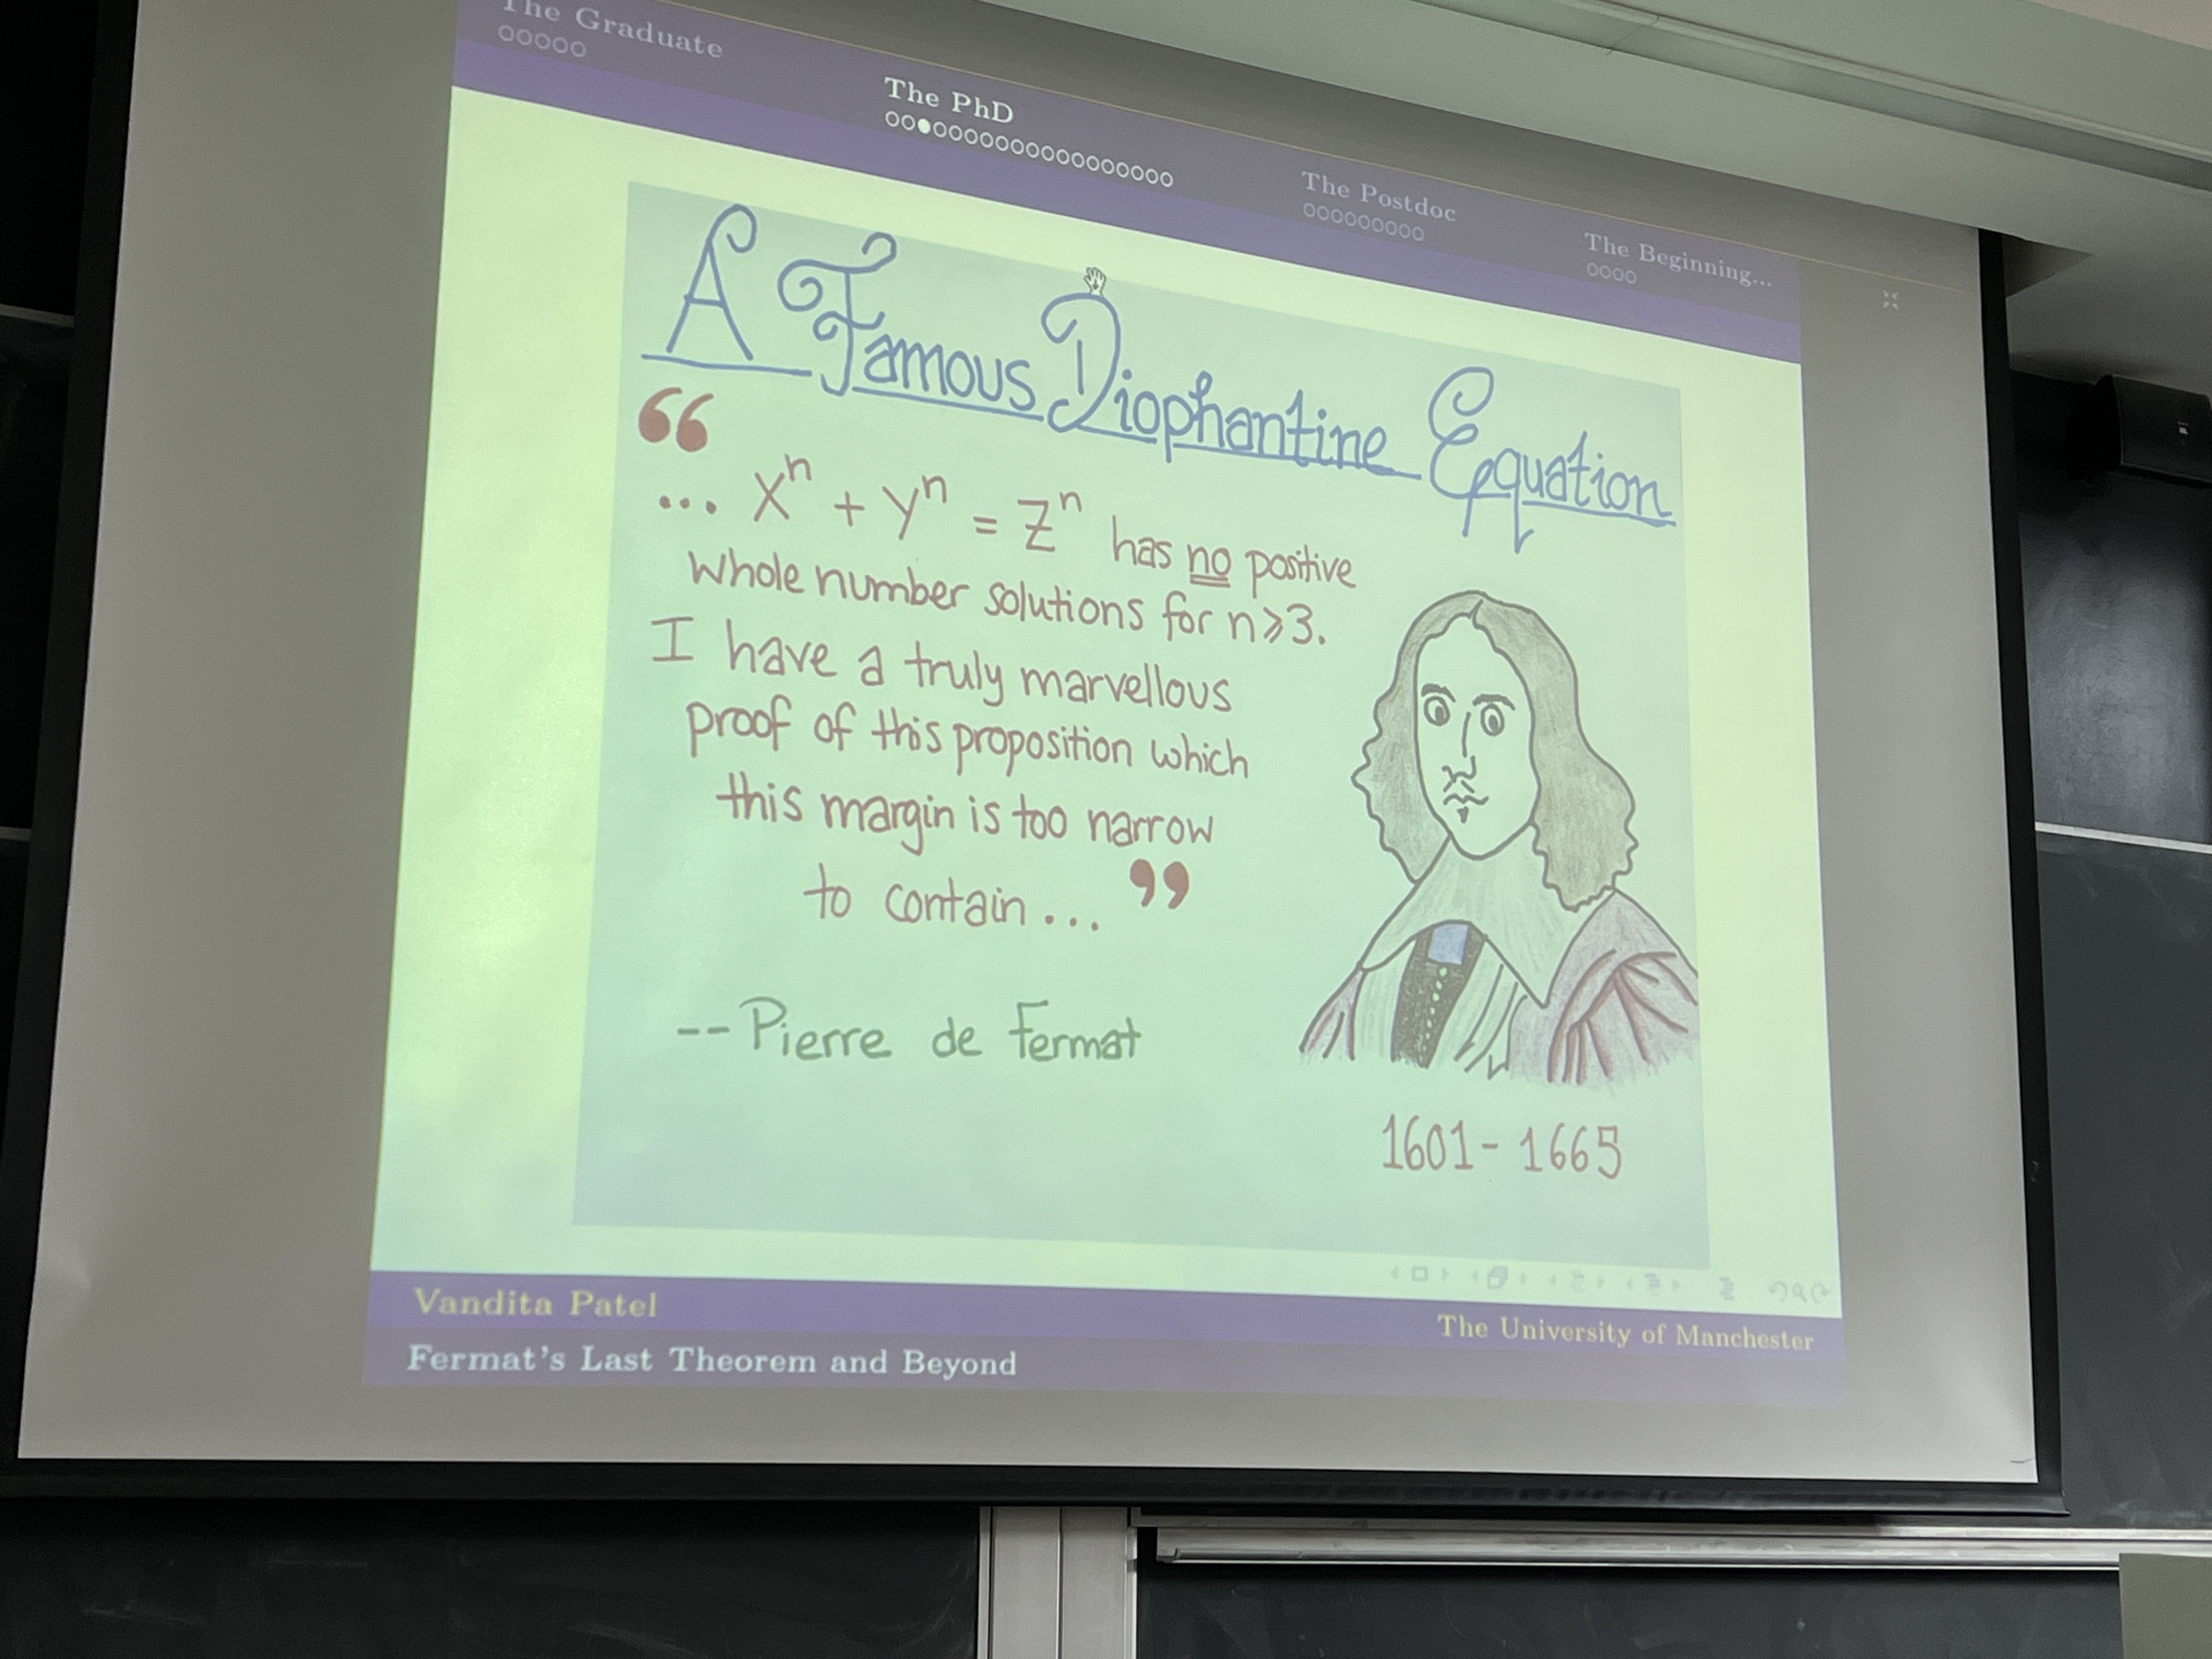 The Graduate
The PhD
The Postdoc
The Beginning...
A Famous Diophantine Equation
“
... xⁿ + yⁿ = zⁿ has no positive
whole number solutions for n⩾3.
I have a truly marvellous
proof of this proposition which
this margin is too narrow
to contain ... ”
-- Pierre de Fermat
1601 - 1665
Vandita Patel
The University of Manchester
Fermat's Last Theorem and Beyond